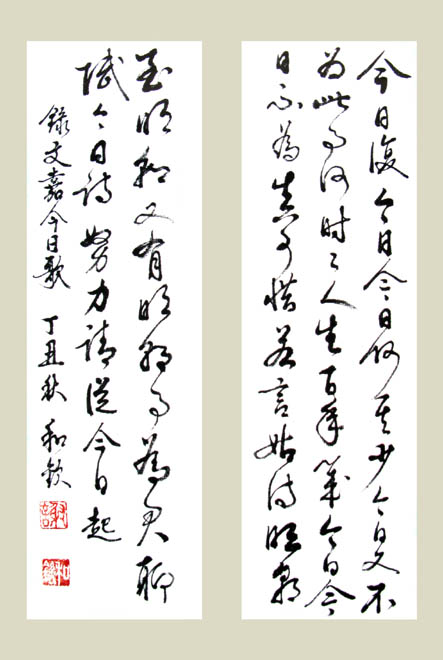 今日復今日今日何其少今日又不
为此事何时了人生百年幾今日今
日不為真可惜若言姑待明朝
至明朝又有明朝事為君聊
賦今日詩努力請從今日起
錄文嘉今日歌 丁丑秋 和欽